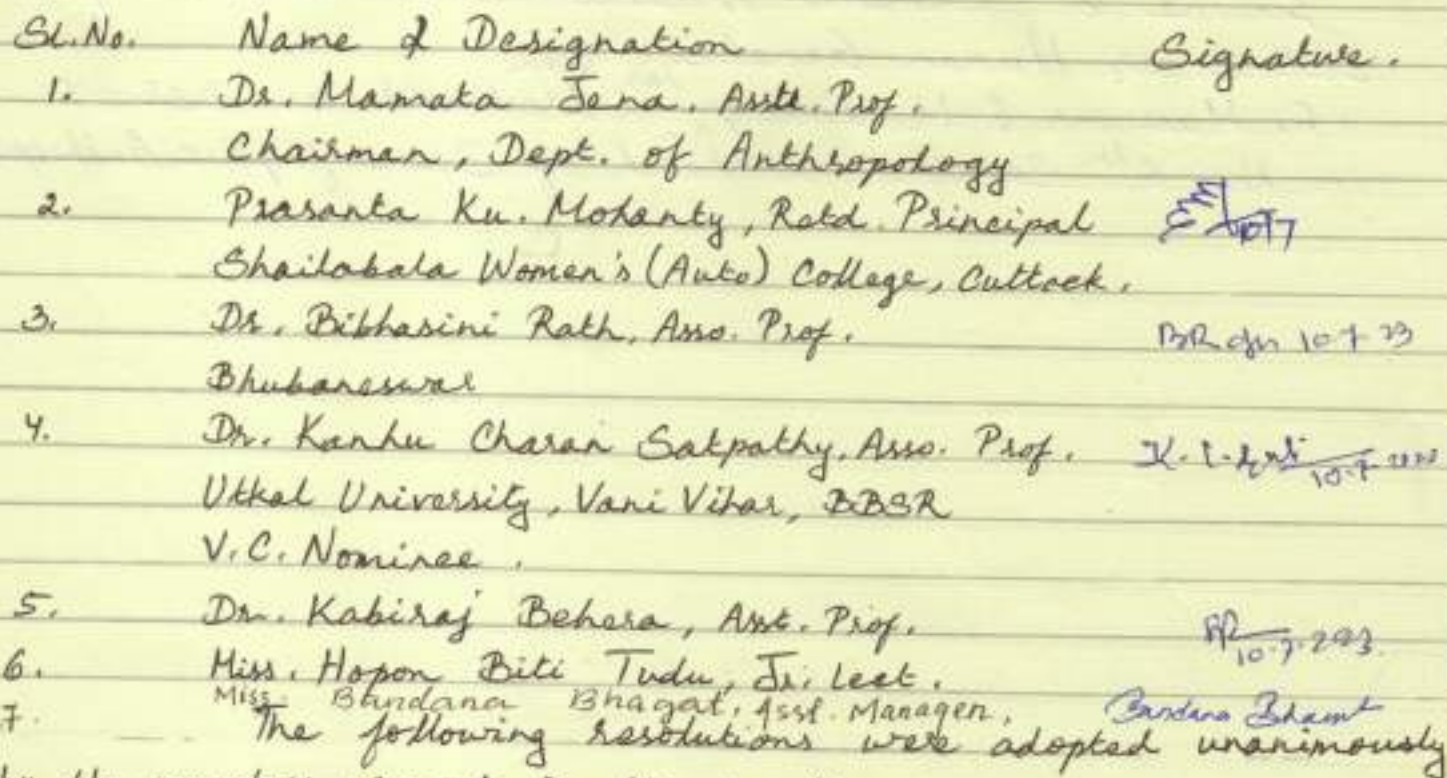 Sl. No. Name & Designation Signature.
1. Dr. Mamata Jena, Asst. Prof.
Chairman, Dept. of Anthropology
2. Prasanta Ku. Mohanty, Retd. Principal
Shailabala Women's (Auto) College, Cuttack.
3. Dr. Bibhasini Rath, Asso. Prof. 10-7-23
Bhubaneswar
4. Dr. Kanhu Charan Satpathy, Asso. Prof. 10-7-2023
Utkal University, Vani Vihar, BBSR
V.C. Nominee.
5. Dr. Kabiraj Behera, Asst. Prof. 10-7-2023
6. Miss. Hopon Biti Tudu, Jr. Lect.
7. Miss Bandana Bhagat, Asst. Manager, Bandana Bhagat
The following resolutions were adopted unanimously